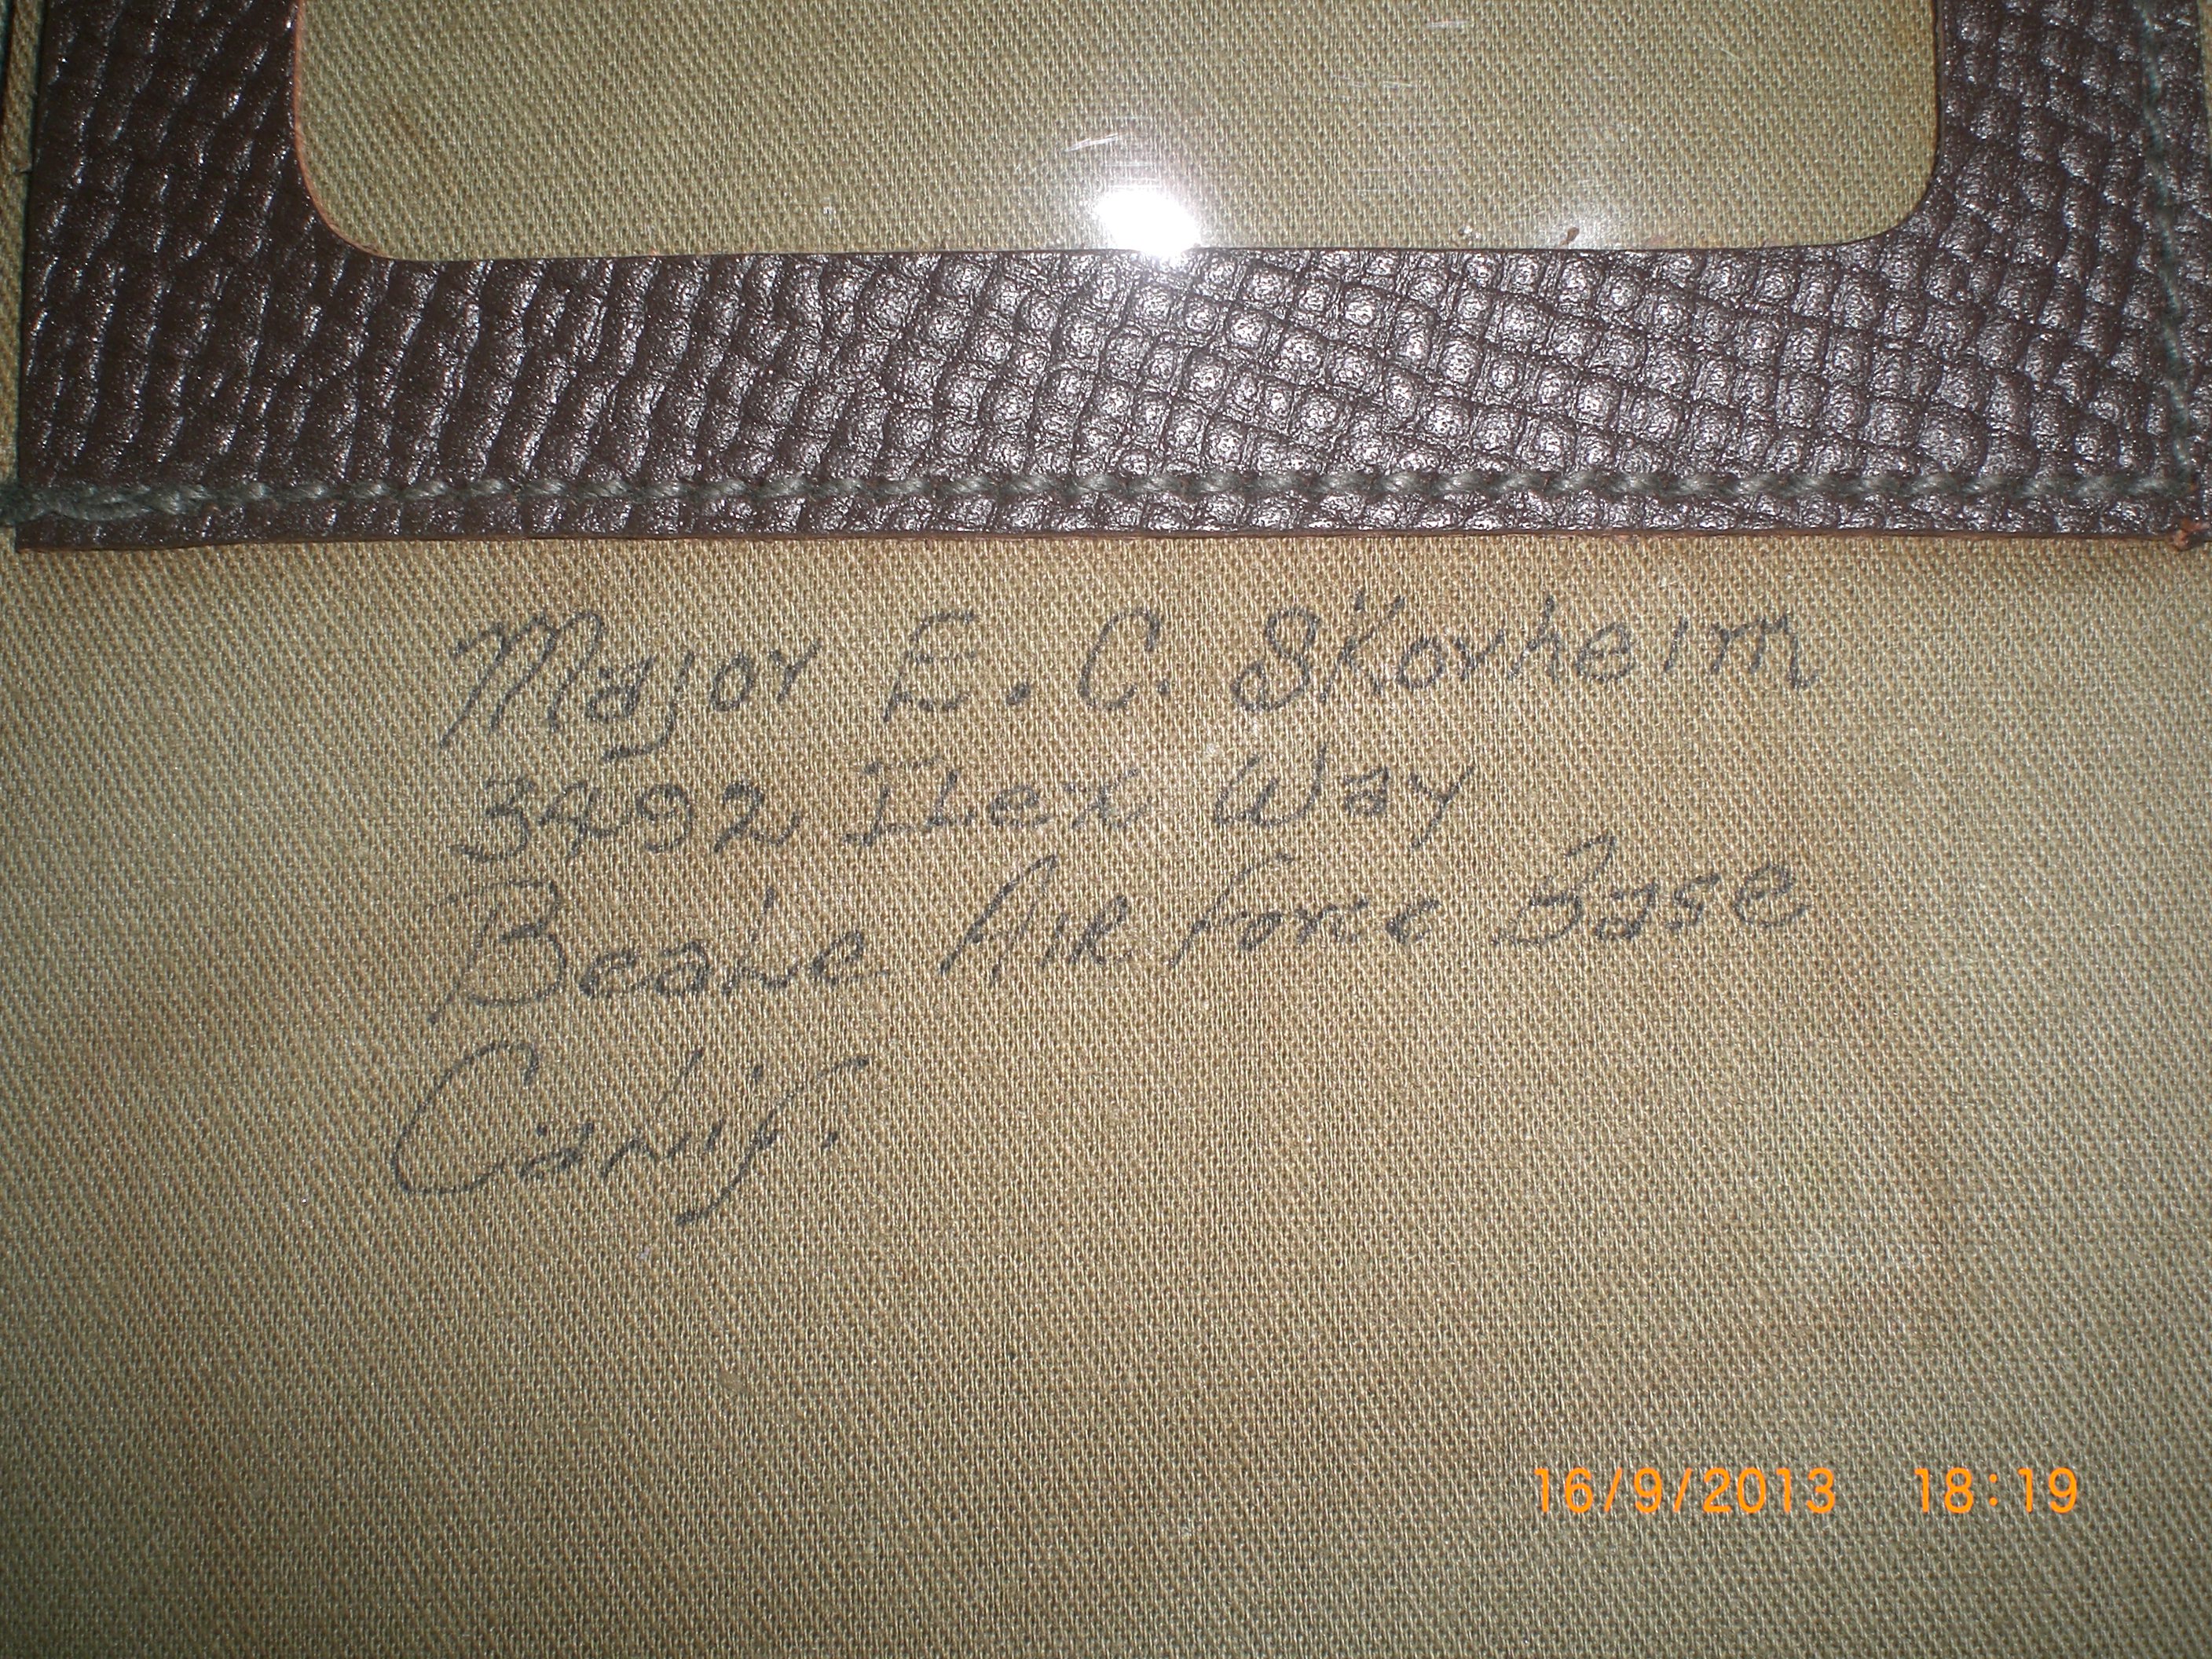 Major E. C. Skorheim
3492 ILex Way
Beale Air Force Base
Calif.
16/9/2013 18:19